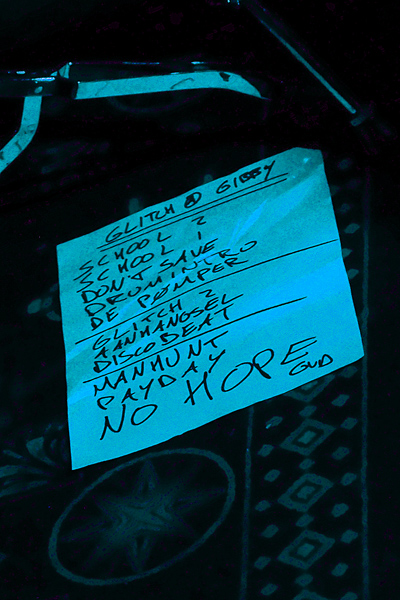 GLITCH @ GIBBY
SCHOOL 2
SCHOOL 1
DON'T SAVE
DRUM INTRO
DE POMPER
GLITCH 2
AANHANGSEL
DISCOBEAT
MANHUNT
PAYDAY
NO HOPE
GVD